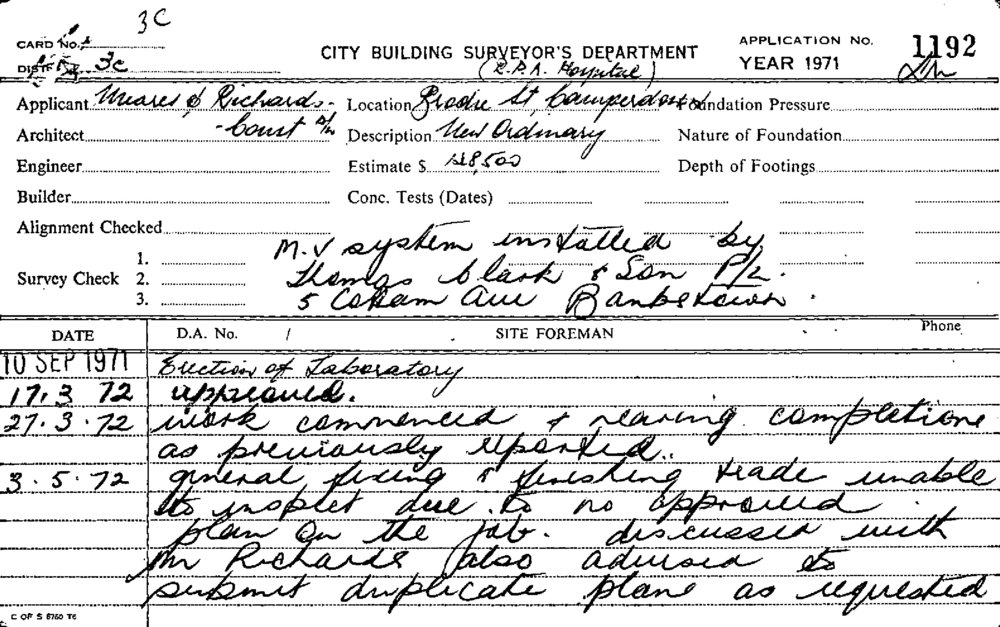 3C
CARD No.
CITY BUILDING SURVEYOR'S DEPARTMENT
APPLICATION No. 1192
DISTRICT 3c
(R.P.A. Hospital)
YEAR 1971
Applicant Meares & Richards - Location Brodie St, Camperdown Foundation Pressure
Architect - Const P/L Description New Ordinary Nature of Foundation
Engineer Estimate $ 8,500 Depth of Footings
Builder Conc. Tests (Dates)
Alignment Checked
M.V system installed by
Survey Check 1.
2. Thomas Clark & Son P/L.
3. 5 Ave Bankstown.
DATE D.A. No. / SITE FOREMAN Phone
10 SEP 1971 Erection of Laboratory
17.3 72 approved.
27.3.72 work commenced & nearing completion
as previously reported.
3.5.72 general fixing & finishing trade unable
to inspect due to no approved
plan on the job. discussed with
Mr Richards also advised to
submit duplicate plans as requested
C OF S 8760 T6